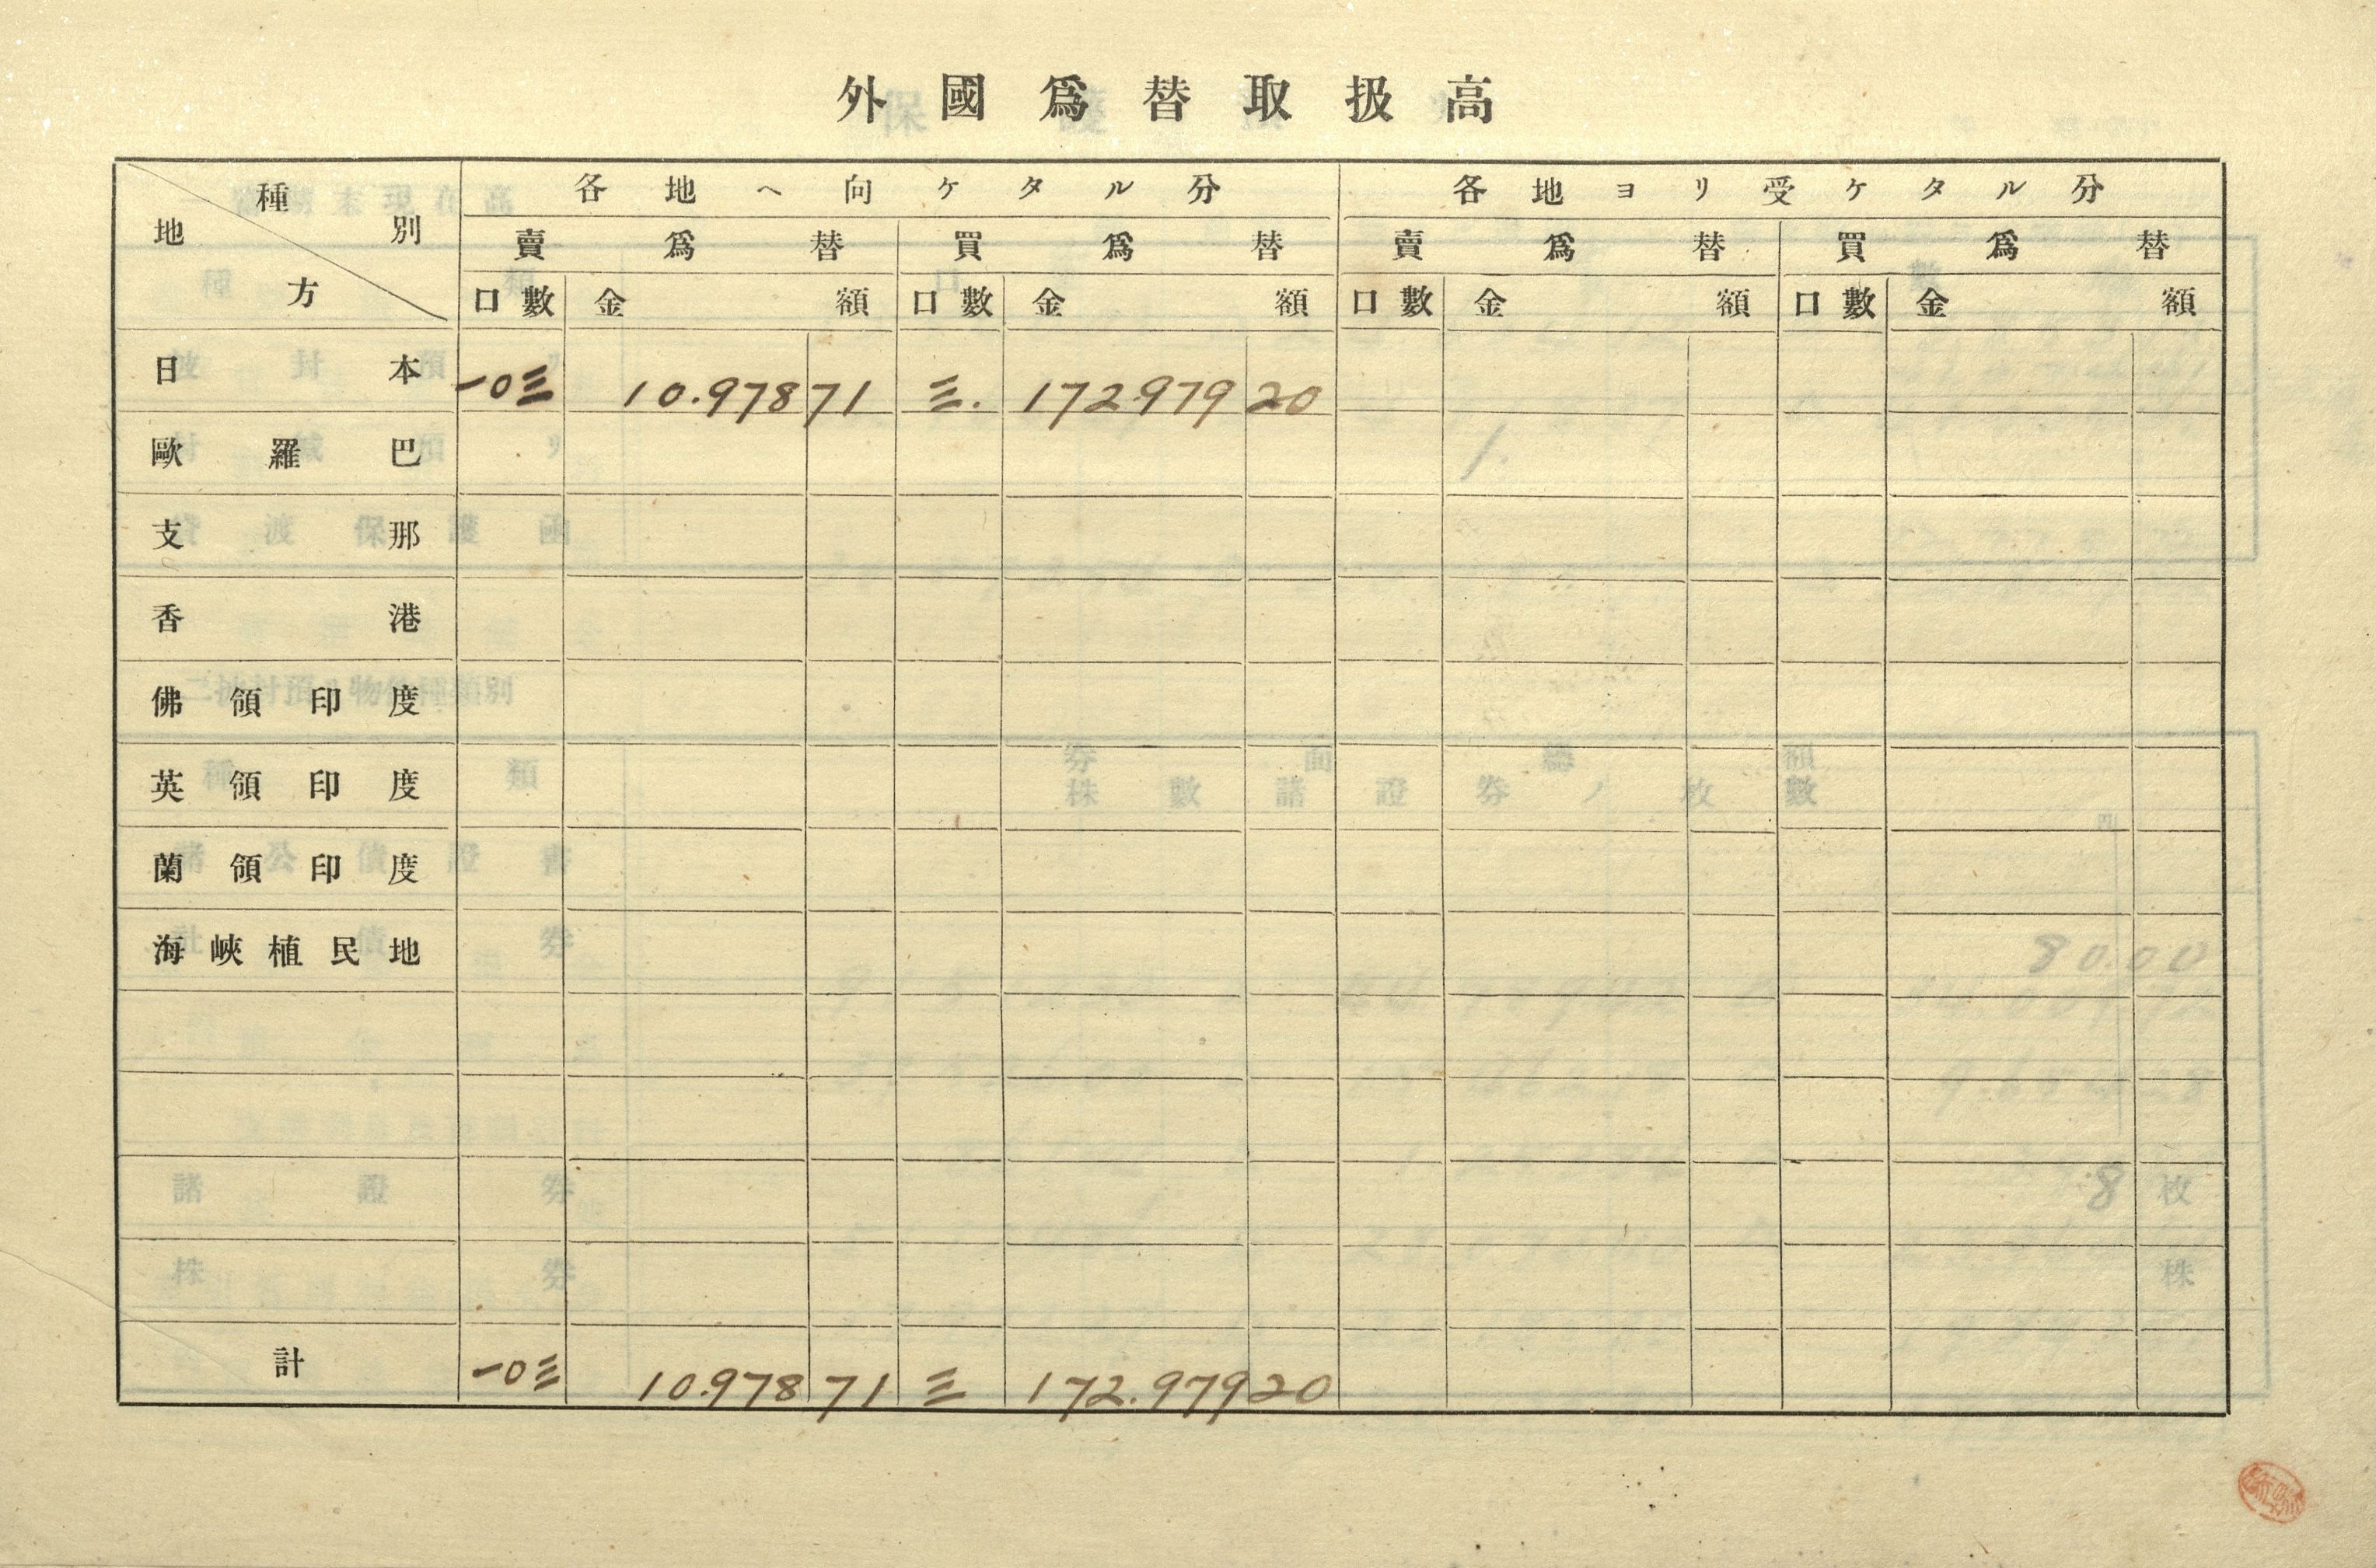 外國爲替取扱高
種別 地方 各地ヘ向ケタル分 各地ヨリ受ケタル分
賣爲替 買爲替 賣爲替 買爲替
口數 金額 口數 金額 口數 金額 口數 金額
日本 一〇三 10.978 71 三. 172.979 20
歐羅巴
支那
香港
佛領印度
英領印度
蘭領印度
海峽植民地
計 一〇三 10.978 71 三 172.979 20